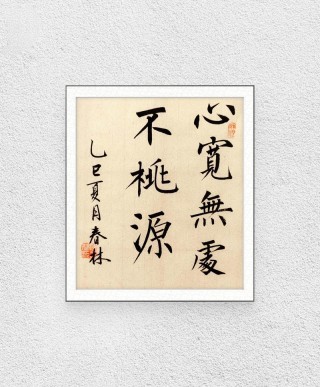 心寬無處
不桃源
乙巳夏月春林